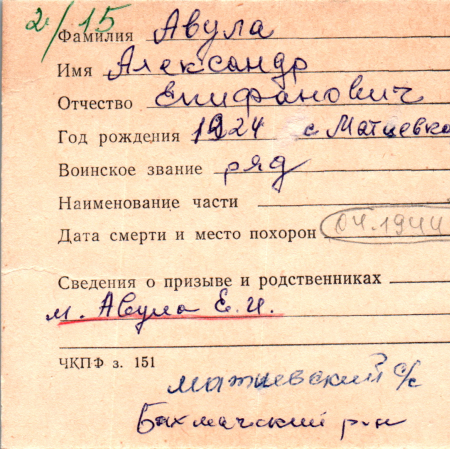 2/15
Фамилия Авула
Имя Александр
Отчество Епифанович
Год рождения 1924 с Матиевка
Воинское звание ряд
Наименование части
Дата смерти и место похорон 04.1944
Сведения о призыве и родственниках
м. Авула Е.И.
ЧКПФ з. 151
матиевский с/с
Бахмачский р-н